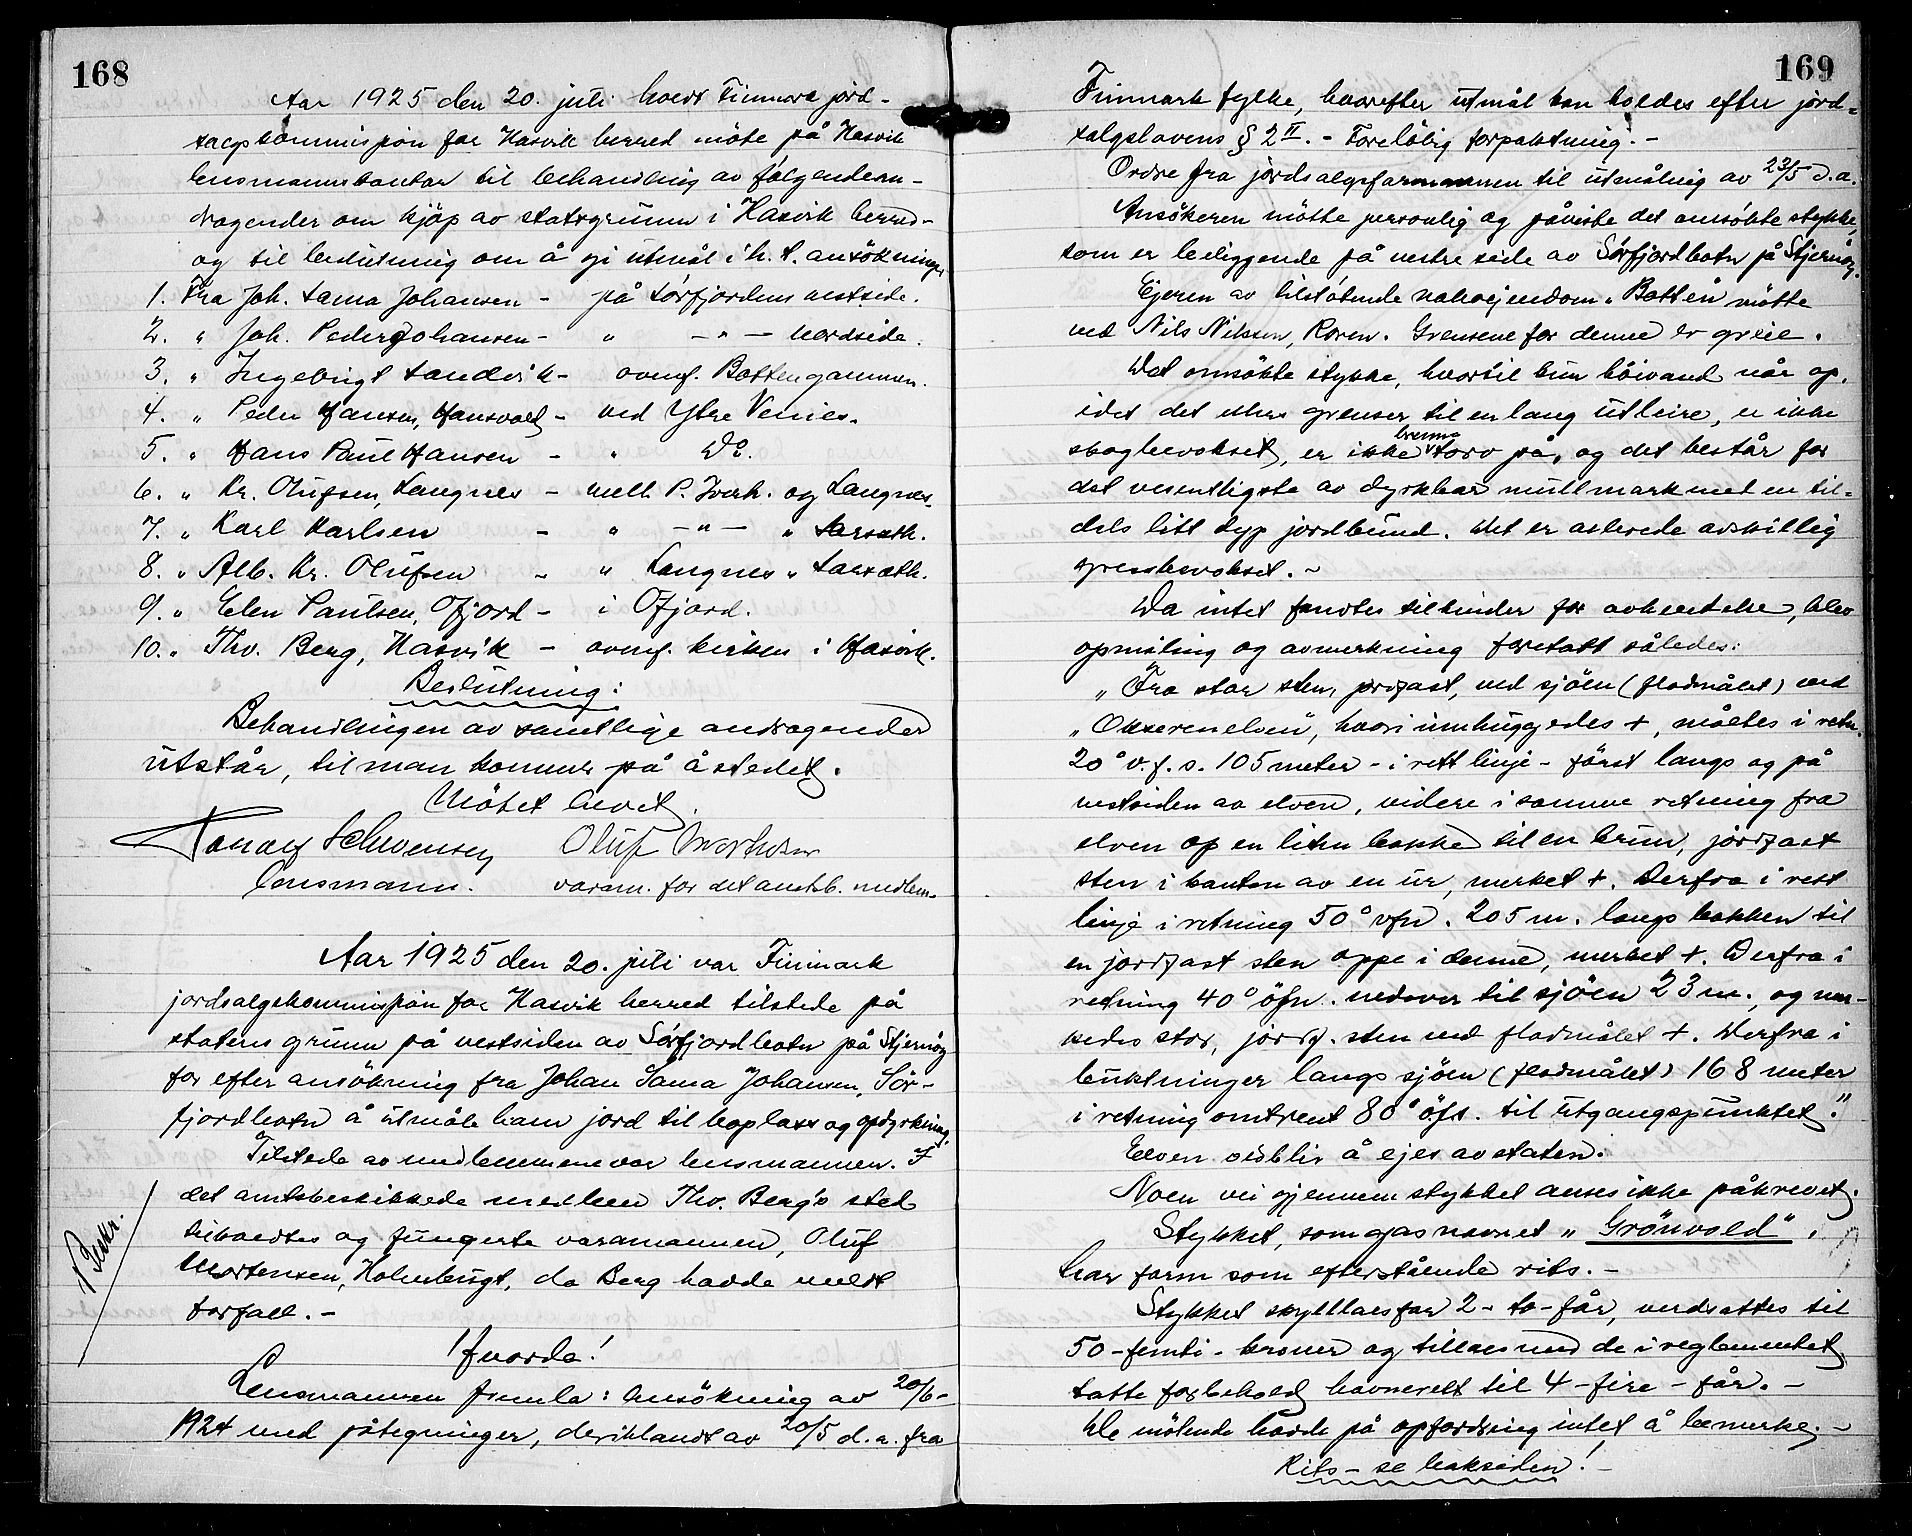 168
Aar 1925 den 20. juli holdt Finmark jord-
salgskommisjon for Hasvik herred möte på Hasvik
lensmannskontor til behandling av følgende an-
dragender om kjöp av statsgrunn i Hasvik herred-
og til beslutning om å gi utmål i h. t. ansökninger
1. Fra Joh. Sama Johansen - på Sörfjordens vestside.
2. " Joh. Peder Johansen - " -"- nordside.
3. " Ingebrigt Sandvik - ovenf. Bottengammen.
4. " Peder Hansen, Hansvold - ved Ytre Venies.
5. " Hans Paul Hansen - " Do.
6. " Kr. Olufsen, Langnes - mell. P. Iverh. og Langnes.
7. " Karl Karlsen - " -"- "
8. " Alb. Kr. Olufsen - " Langnes "
9. " Elen Paulsen, Ofjord - i Ofjord.
10. " Thv. Berg, Hasvik - ovenf. kirken i Hasvik.
Beslutning:
Behandlingen av samtlige andragender
utstår, til man kommer på åstedet.
Mötet hevet.
Oluf Mortensen
lensmann. varam. for det amtsb. medlem.
Aar 1925 den 20. juli var Finmark
jordsalgskommisjon for Hasvik herred tilstede på
statens grunn på vestsiden av Sörfjordbotn på Stjernöy
for efter ansökning fra Johan Sama Johansen, Sör-
fjordbotn å utmåle ham jord til boplass og opdyrkning.
Tilstede av medlemmene var lensmannen. I
det amtsbeskikkede medlem Thv. Berg's sted
tilkaldtes og fungerte varamannen, Oluf
Mortensen, Holmbugt, da Berg hadde meldt
forfall. -
Beskr.
! hvorda !
Lensmannen fremla: Ansökning av 20/6-
1924 med påtegninger, deriblandt av 20/5 d. a. fra
169
Finmark fylke, hvorefter utmål kan holdes efter jord-
salgslovens § 2 II. - Forelöbig forpaktning. -
Ordre fra jordsalgsformannen til utmåling av 23/5 d. a.
Ansökeren mötte personlig og påviste det ansökte stykke,
som er beliggende på vestre side av Sörfjordbotn på Stjernöy.
Ejeren av tilstötende naboejendom "Botten" mötte
ved Nils Nilsen, Koven. Grensene for denne er greie.
Det ansökte stykke, hvortil kun höivand når op,
idet det ellers grenser til en lang utleire, er ikke
skogbevokset, er ikke brenn torv på, og det består for
det vesentligste av dyrkbar mullmark med en til-
dels litt dyp jordbund. Det er allerede adskillig
gressbevokset. -
Da intet fandtes til hinder for avhendelse, blev
opmåling og avmerkning foretatt således:
"Fra stor sten, jordfast, ved sjöen (flodmålet) ved
"Okserenelven", hvori innhuggedes +, måltes i retn.
20° v. f. s. 105 meter - i rett linje - först langs og på
vestsiden av elven, videre i samme retning fra
elven op en liten bakke til en brun, jordfast
sten i kanten av en ur, merket +. Derfra i rett
linje i retning 50° vfn. 205 m. langs bakken til
en jordfast sten oppe i denne, merket +. Derfra i
retning 40° öfn. nedover til sjöen 23 m., og mer-
kedes stor, jordf. sten ved flodmålet +. Derfra i
buktninger langs sjöen (flodmålet) 168 meter
i retning omtrent 80° öfs. til utgangspunktet."
Elven vedblir å ejes av staten.
Noen vei gjennem stykket anses ikke påkrevet.
Stykket, som gas navnet "Grönvold",
har form som efterstående rits. -
Stykket skylllaes for 2 - to - får, verdsattes til
50 - femti - kroner og tillaes med de i reglementet
tatte forbehold havnerett til 4 - fire - får. -
De mötende hadde på opfordring intet å bemerke. -
Rits - se baksiden! -